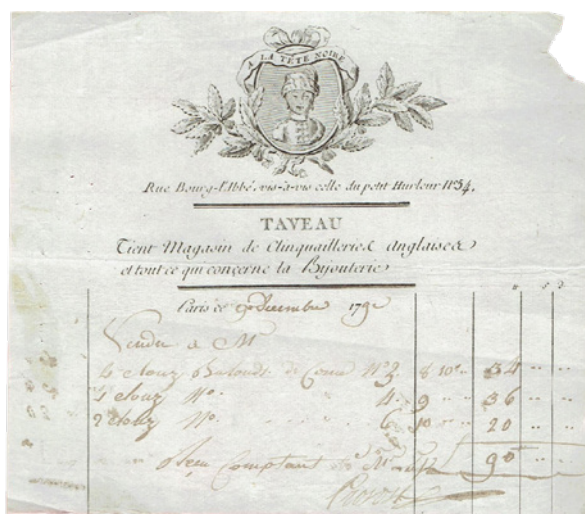 A LA TETE NOIRE
Rue Bourg-l'Abbé, vis-à-vis celle du petit Hurleur N°54.
TAVEAU
Tient Magasin de Clinquailleries Anglaises
et tout ce qui concerne la Bijouterie
Paris ce 9 Decembre 179
Vendu a M
4 clouz de N° 3 8 10 34
4 clouz N° 4 9 36
2 clouz N° 6 10 20
Recu Comptant 90